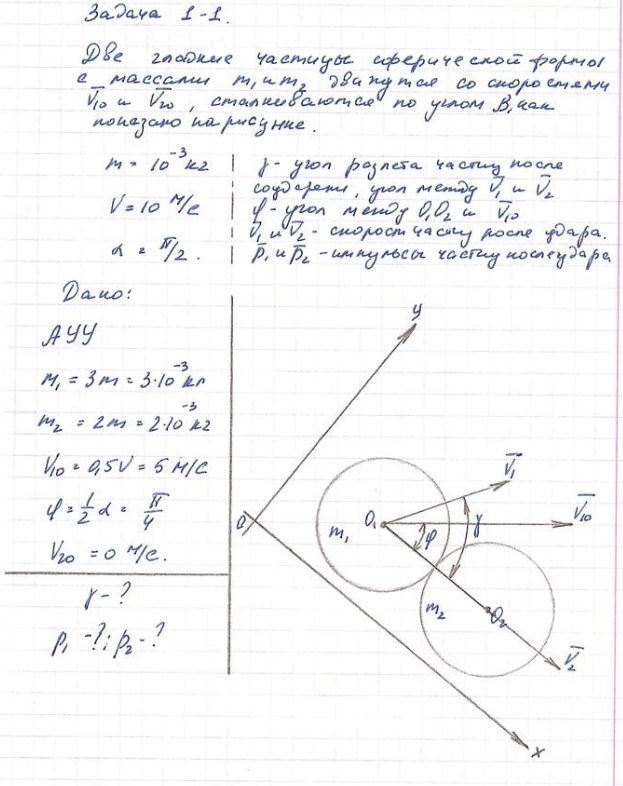 Задача 1-1.
Две гладкие частицы сферической формы
с массами m₁ и m₂ движутся со скоростями
V̅₁₀ и V̅₂₀, сталкиваются по углом β, как
показано на рисунке.
m = 10⁻³ кг
V = 10 м/с
α = π/2.
γ - угол разлета частиц после
соударени, угол между V̅₁ и V̅₂
φ - угол между O₁O₂ и V̅₁₀
V̅₁ и V̅₂ - скорост частиц после удара.
p̅₁ и p̅₂ - импульсы частиц после удара
Дано:
АУУ
m₁ = 3m = 3·10⁻³ кг
m₂ = 2m = 2·10⁻³ кг
V₁₀ = 0,5V = 5 м/с
φ = 1/2 α = π/4
V₂₀ = 0 м/с.
γ - ?
p₁ - ?; p₂ - ?
y
V̅₁
V̅₁₀
O
m₁
O₁
φ
γ
m₂
O₂
V̅₂
x